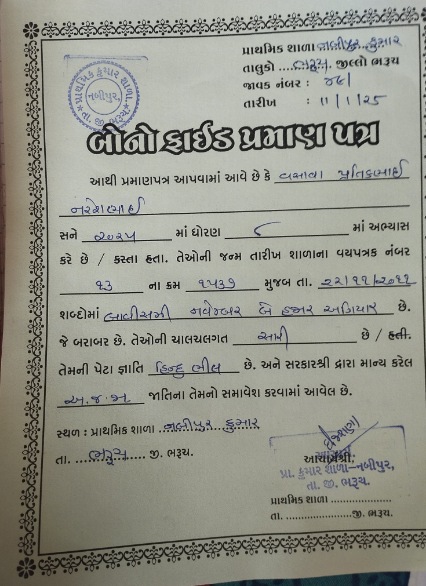 પ્રાથમિક શાળા નબીપુર કુમાર
તાલુકો ....ભરૂચ. જીલ્લો ભરૂચ
જાવક નંબર : ૪૯/
તારીખ : ૧૧/૧/૨૫
પ્રાથમિક કુમાર શાળા
નબીપુર,
તા. જી. ભરૂચ
બોનો ફાઈડ પ્રમાણ પત્ર
આથી પ્રમાણપત્ર આપવામાં આવે છે કે વસાવા પ્રતિકભાઈ
નરેશભાઈ
સને ૨૦૨૫ માં ધોરણ ૮ માં અભ્યાસ
કરે છે / કરતા હતા. તેઓની જન્મ તારીખ શાળાના વયપત્રક નંબર
૧૩ ના ક્રમ ૧૫૩૭ મુજબ તા. ૨૨/૧૧/૨૦૧૧
શબ્દોમાં બાવીસમી નવેમ્બર બે હજાર અગિયાર છે.
જે બરાબર છે. તેઓની ચાલચલગત સારી છે / હતી.
તેમની પેટા જ્ઞાતિ હિન્દુ ભીલ છે. અને સરકારશ્રી દ્વારા માન્ય કરેલ
અ.જ.જા જાતિના તેમનો સમાવેશ કરવામાં આવેલ છે.
સ્થળ : પ્રાથમિક શાળા ..નબીપુર.. કુમાર
તા. ....ભરૂચ..... જી. ભરૂચ.
આચાર્યશ્રી.
પ્રા. કુમાર શાળા-નબીપુર,
તા. જી. ભરૂચ.
પ્રાથમિક શાળા ....................
તા. ......................જી. ભરૂચ.